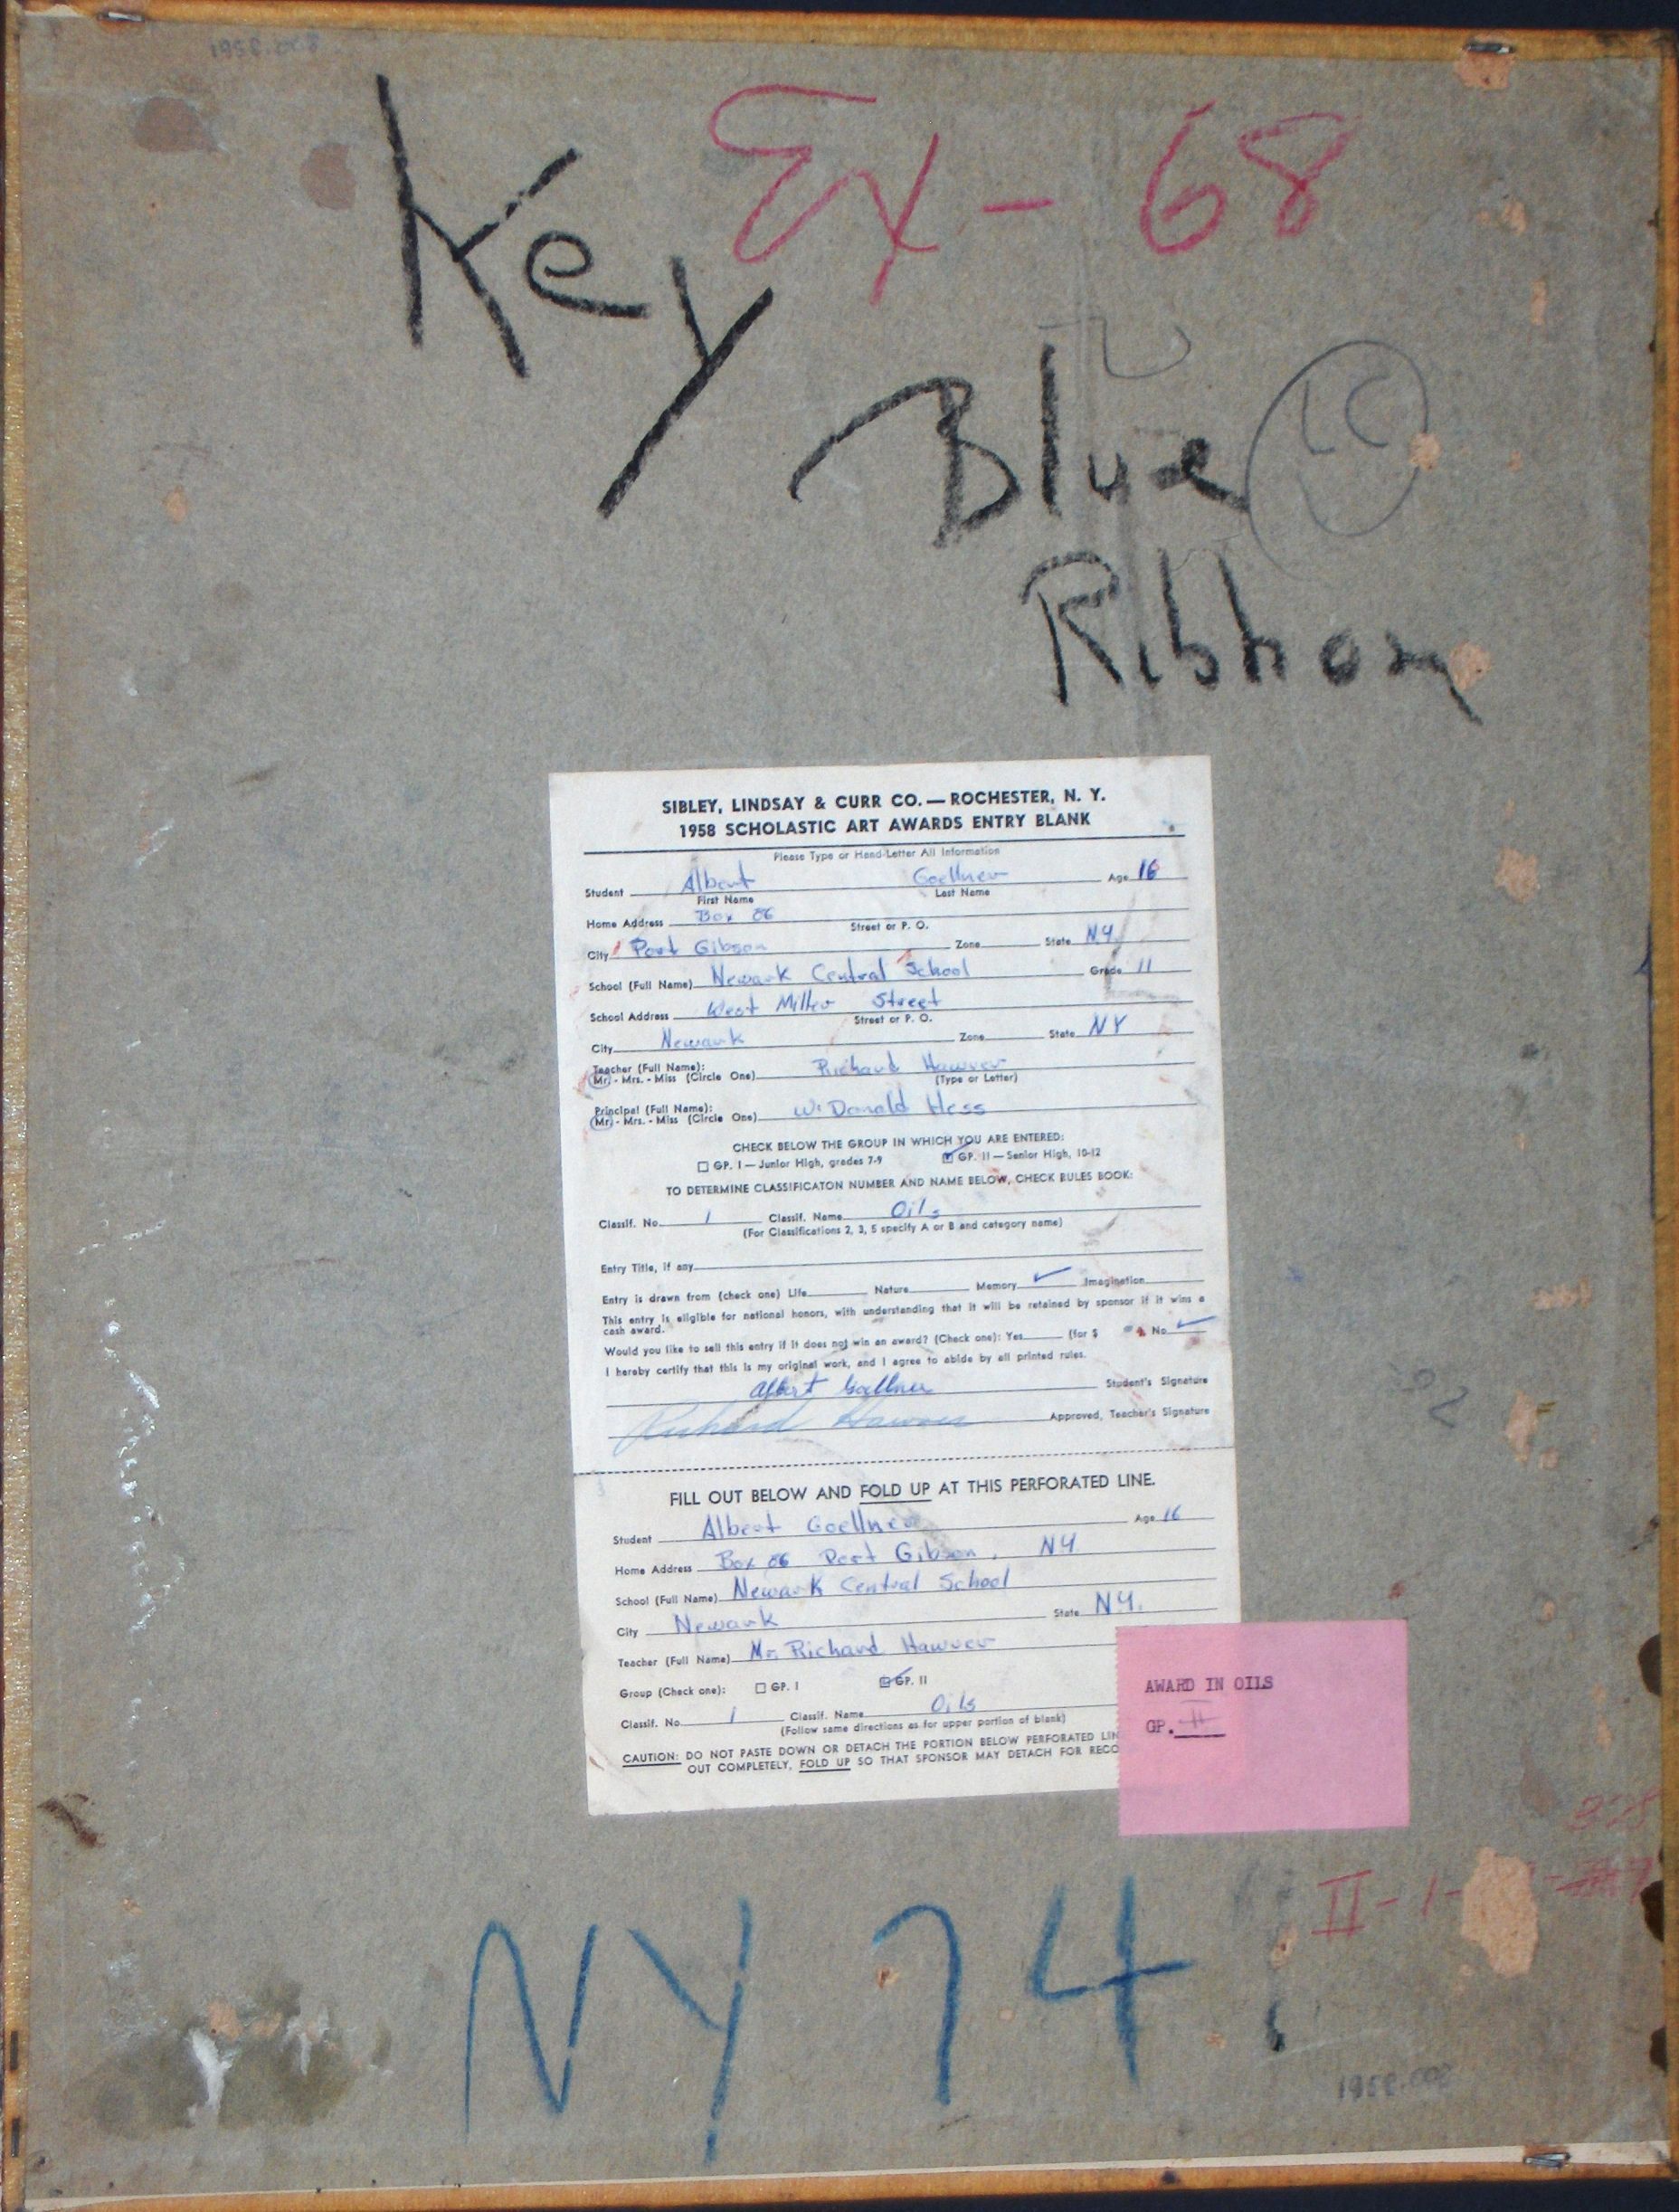 1958.008
Key
Ex - 68
Blue
Ribbon
SIBLEY, LINDSAY & CURR CO. — ROCHESTER, N. Y.
1958 SCHOLASTIC ART AWARDS ENTRY BLANK
Please Type or Hand-Letter All Information
Student Albert Goellner Age 16
First Name Last Name
Home Address Box 86
Street or P. O.
City Port Gibson Zone State N.Y.
School (Full Name) Newark Central School Grade 11
School Address West Miller Street
Street or P. O.
City Newark Zone State NY
Teacher (Full Name): Richard Hawver
Mr. - Mrs. - Miss (Circle One) (Type or Letter)
Principal (Full Name):
Mr. - Mrs. - Miss (Circle One) W. Donald Hess
CHECK BELOW THE GROUP IN WHICH YOU ARE ENTERED:
GP. I — Junior High, grades 7-9 GP. II — Senior High, 10-12
TO DETERMINE CLASSIFICATON NUMBER AND NAME BELOW, CHECK RULES BOOK:
Classif. No. 1 Classif. Name Oils
(For Classifications 2, 3, 5 specify A or B and category name)
Entry Title, if any
Entry is drawn from (check one) Life Nature Memory ✓ Imagination
This entry is eligible for national honors, with understanding that it will be retained by sponsor if it wins a
cash award.
Would you like to sell this entry if it does not win an award? (Check one): Yes (for $ ) No ✓
I hereby certify that this is my original work, and I agree to abide by all printed rules.
Albert Goellner Student's Signature
Richard Hawver Approved, Teacher's Signature
FILL OUT BELOW AND FOLD UP AT THIS PERFORATED LINE.
Student Albert Goellner Age 16
Home Address Box 86 Port Gibson, NY.
School (Full Name) Newark Central School
City Newark State NY.
Teacher (Full Name) Mr. Richard Hawver
Group (Check one): GP. I GP. II
Classif. No. 1 Classif. Name Oils
(Follow same directions as for upper portion of blank)
CAUTION: DO NOT PASTE DOWN OR DETACH THE PORTION BELOW PERFORATED LIN
OUT COMPLETELY, FOLD UP SO THAT SPONSOR MAY DETACH FOR RECO
AWARD IN OILS
GP. II
II - 1 -
NY 74
1958.008